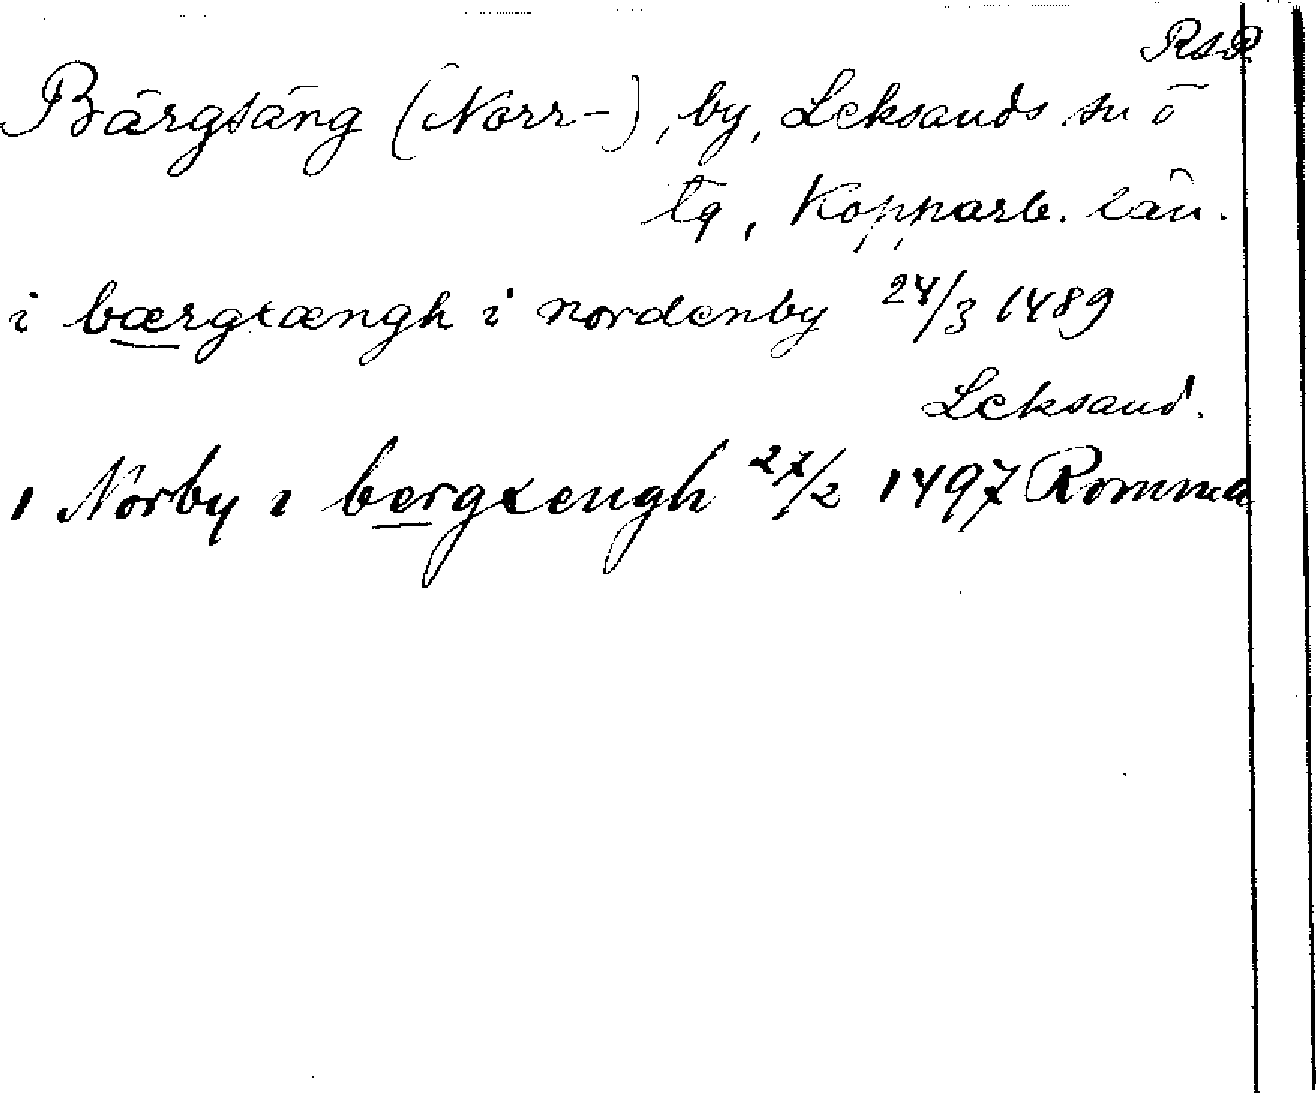 RAP
Bärgsäng (Norr-), by, Leksands sn o
tg, Kopparb. län.
i bærgxængh i nordenby 24/3 1489
Leksand.
i Norby i bergxengh 27/2 1497 Romma